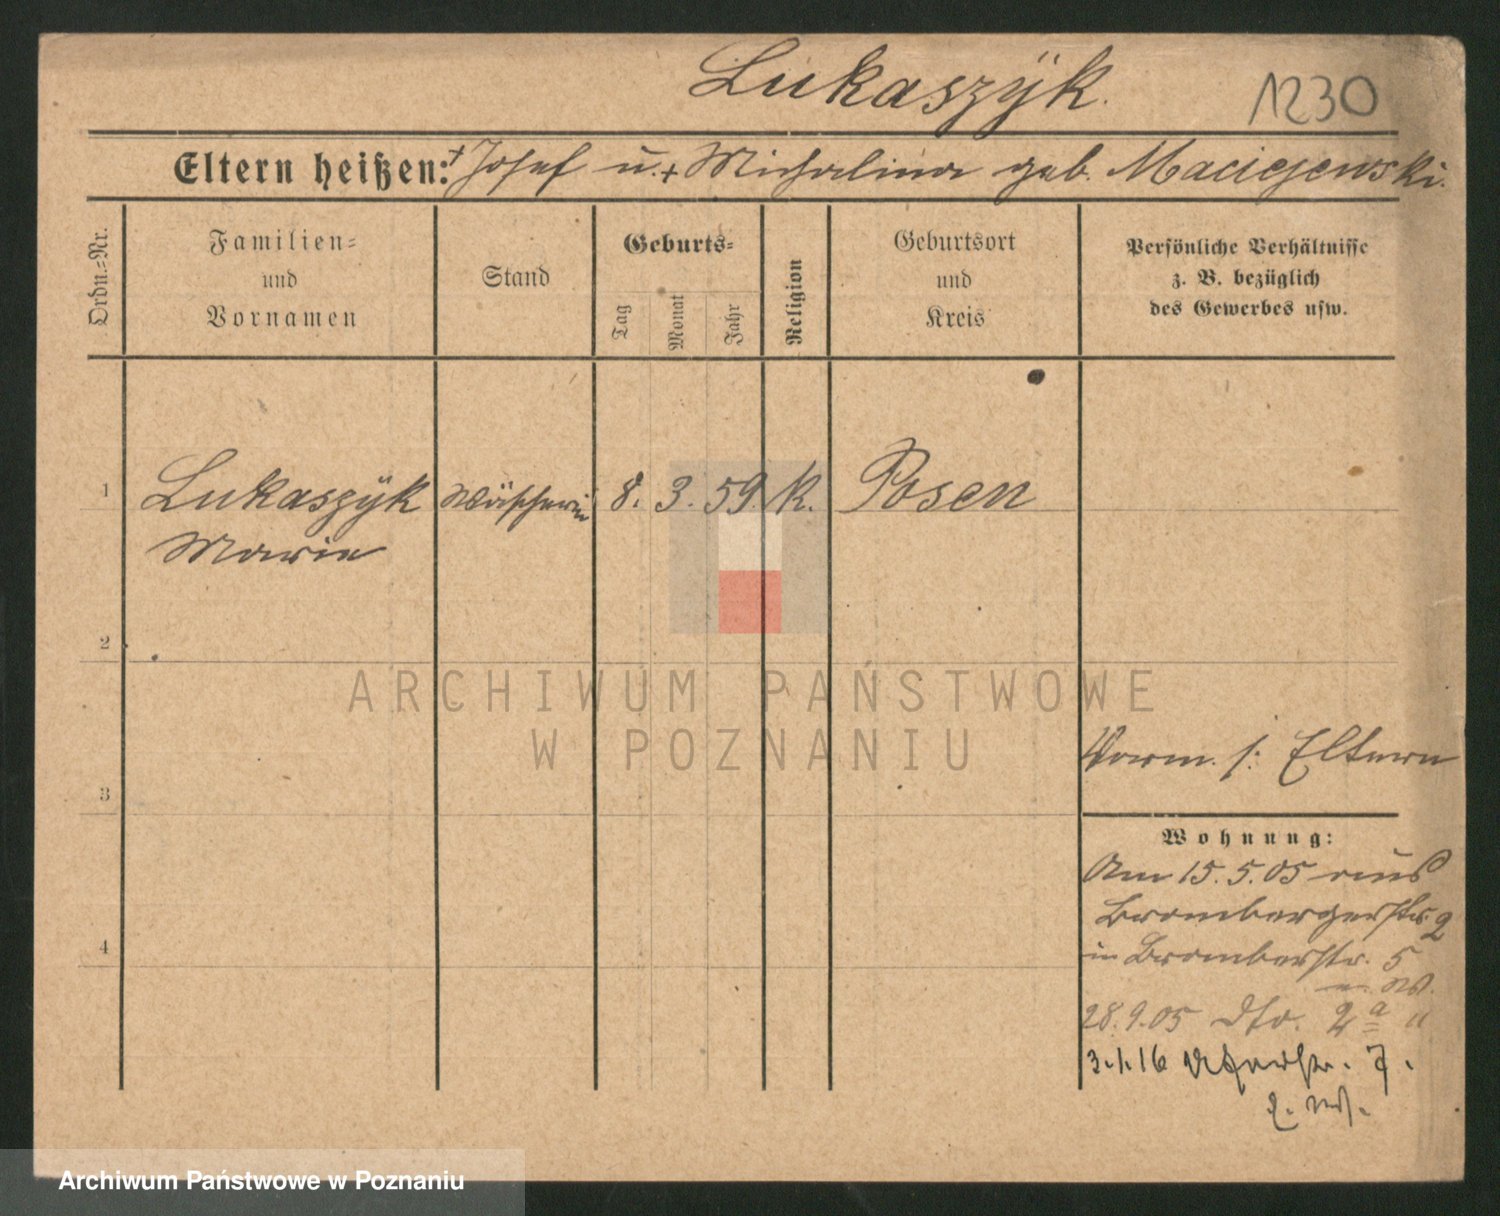 Lukaszÿk.
1230
Eltern heißen: + Josef u. + Michalina geb. Maciejewski.
Ordn.=Nr.
Familien=
und
Vornamen
Stand
Geburts=
Tag
Monat
Jahr
Religion
Geburtsort
und
Kreis
Persönliche Verhältnisse
z. B. bezüglich
des Gewerbes usw.
1
Lukaszÿk
Marie
Wäscherin
8. 3. 59. K.
Posen
2
ARCHIWUM PAŃSTWOWE
W POZNANIU
3
Vorm. s. Eltern
Wohnung:
Am 15.5.05 aus
Brombergerstr. 2
in Brombergerstr. 5
28.9.05 2 a "
4
3.1.16 7.
Archiwum Państwowe w Poznaniu